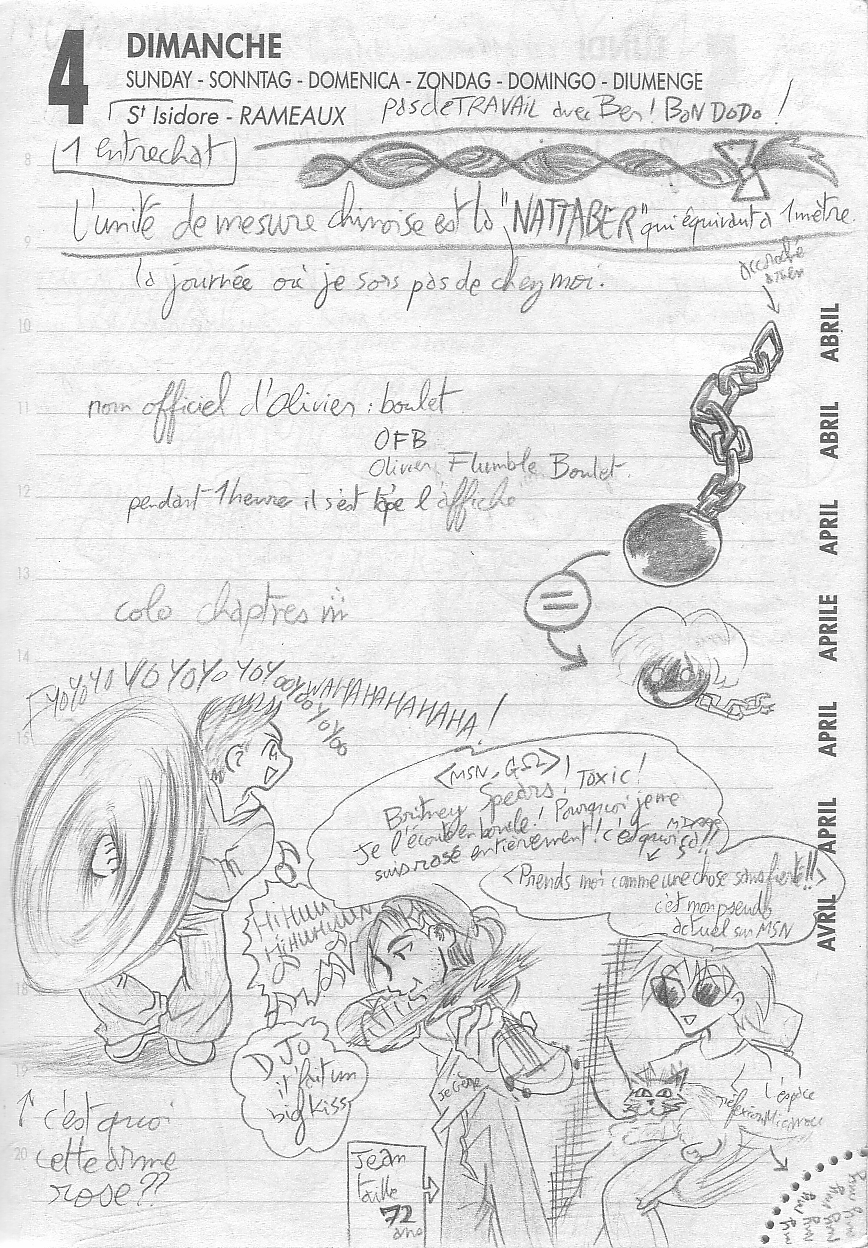 4 DIMANCHE
SUNDAY - SONNTAG - DOMENICA - ZONDAG - DOMINGO - DIUMENGE
St Isidore - RAMEAUX
pas de TRAVAIL avec Ben! BON DODO!
1 entrechat
L'unité de mesure chinoise est la "NATTABER" qui équivaut à 1 mètre.
la journée où je sors pas de chez moi.
8
9
10
11
12
13
14
15
18
19
20
nom officiel d'Olivier : boulet
OFB
Olivier Flumble Boulet.
pendant 1 heure il s'est tapé l'affiche
colo chaptres
ABRIL
ABRIL
APRIL
APRILE
APRIL
APRIL
AVRIL
YOYOYOYOYOYOYOYOOYOOYOYOO
WAHAHAHAHAHA!
<MSN, GΩ>! TOXIC!
Britney Spears!
Je l'écoute en boucle! Pourquoi je me
suis rosé entièrement! c'est quoi ça!!
<Prends moi comme une chose sans fierté!!>
c'est mon pseudo
actuel sur MSN
HiHUU
HiHUHUUUN
DJO
it' fait un
big kiss
↑ c'est quoi
cette arme
rose??
Jean
taille
72
ans
L'espèce